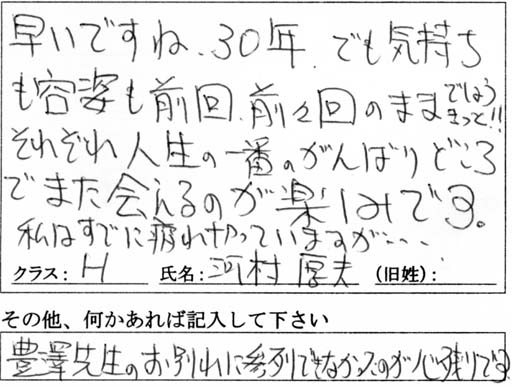 早いですね、30年、でも気持ち
も容姿も前回、前々回のままでしょう
きっと!!
それぞれ人生の一番のがんばりどころ
でまた会えるのが楽しみです。
私はすでに疲れきっていますが・・・
クラス: H 氏名: 河村 厚夫 (旧姓):
その他、何かあれば記入して下さい
豊澤先生のお別れに参列できなかったのが心残りです